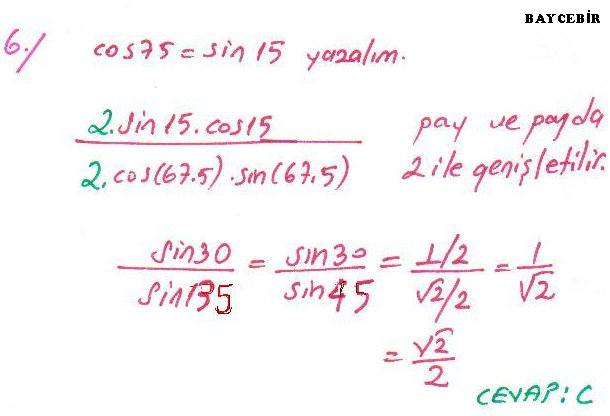 BAYCEBİR
6./ cos75 = sin 15 yazalım.
2.sin 15.cos15 / 2.cos(67.5).sin(67.5) pay ve payda 2 ile genişletilir.
sin30 / sin135 = sin30 / sin45 = 1/2 / √2/2 = 1 / √2
= √2 / 2
CEVAP: C